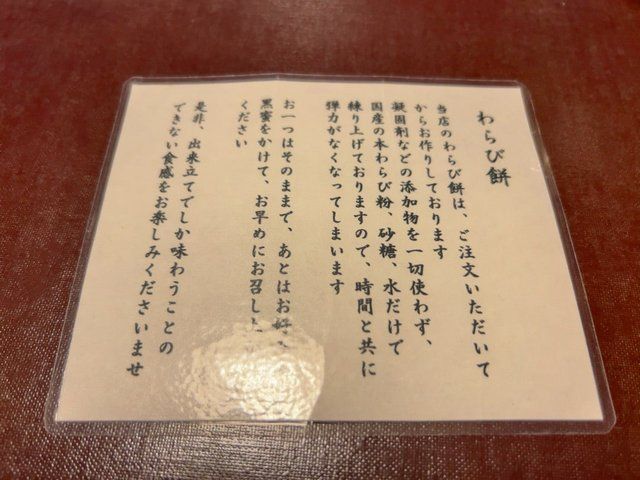 わらび餅
当店のわらび餅は、ご注文いただいて
からお作りしております
凝固剤などの添加物を一切使わず、
国産の本わらび粉、砂糖、水だけで
練り上げておりますので、時間と共に
弾力がなくなってしまいます
お一つはそのままで、あとはお好
黒蜜をかけて、お早めにお召し
ください
是非、出来立てでしか味わうことの
できない食感をお楽しみくださいませ